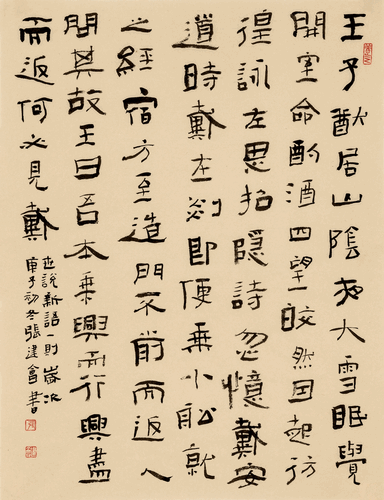 王子猷居山陰夜大雪眠覺
開室命酌酒四望皎然因起彷
徨詠左思招隱詩忽憶戴安
道時戴在剡即便乘小船就
之經宿方至造門不前而返人
問其故王曰吾本乘興而行興盡
而返何必見戴
世說新語一則歲次
庚子初冬張建會書